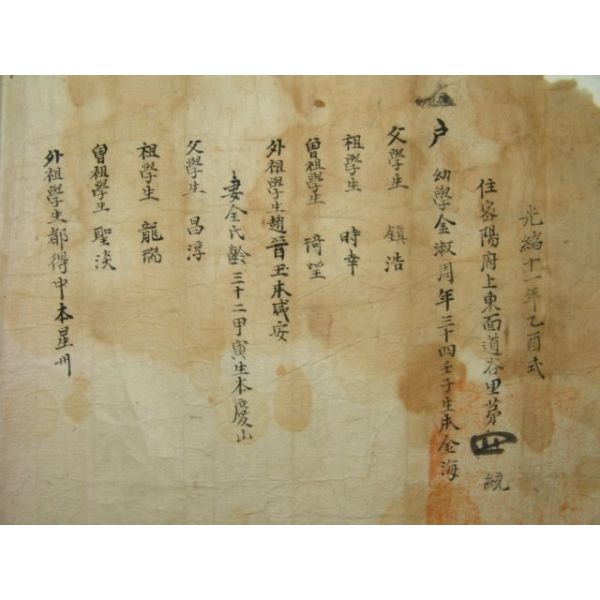 光緒十一年乙酉式
住密陽府上東面道谷里第四統
戶
幼學金淑周年三十四壬子生本金海
父學生 鎮浩
祖學生 時幸
曾祖學生
外祖學生趙晉玉本咸安
妻全氏齡三十二甲寅生本慶山
父學生 昌淳
祖學生 龍瑞
曾祖學生 聖淡
外祖學生都得中本星州